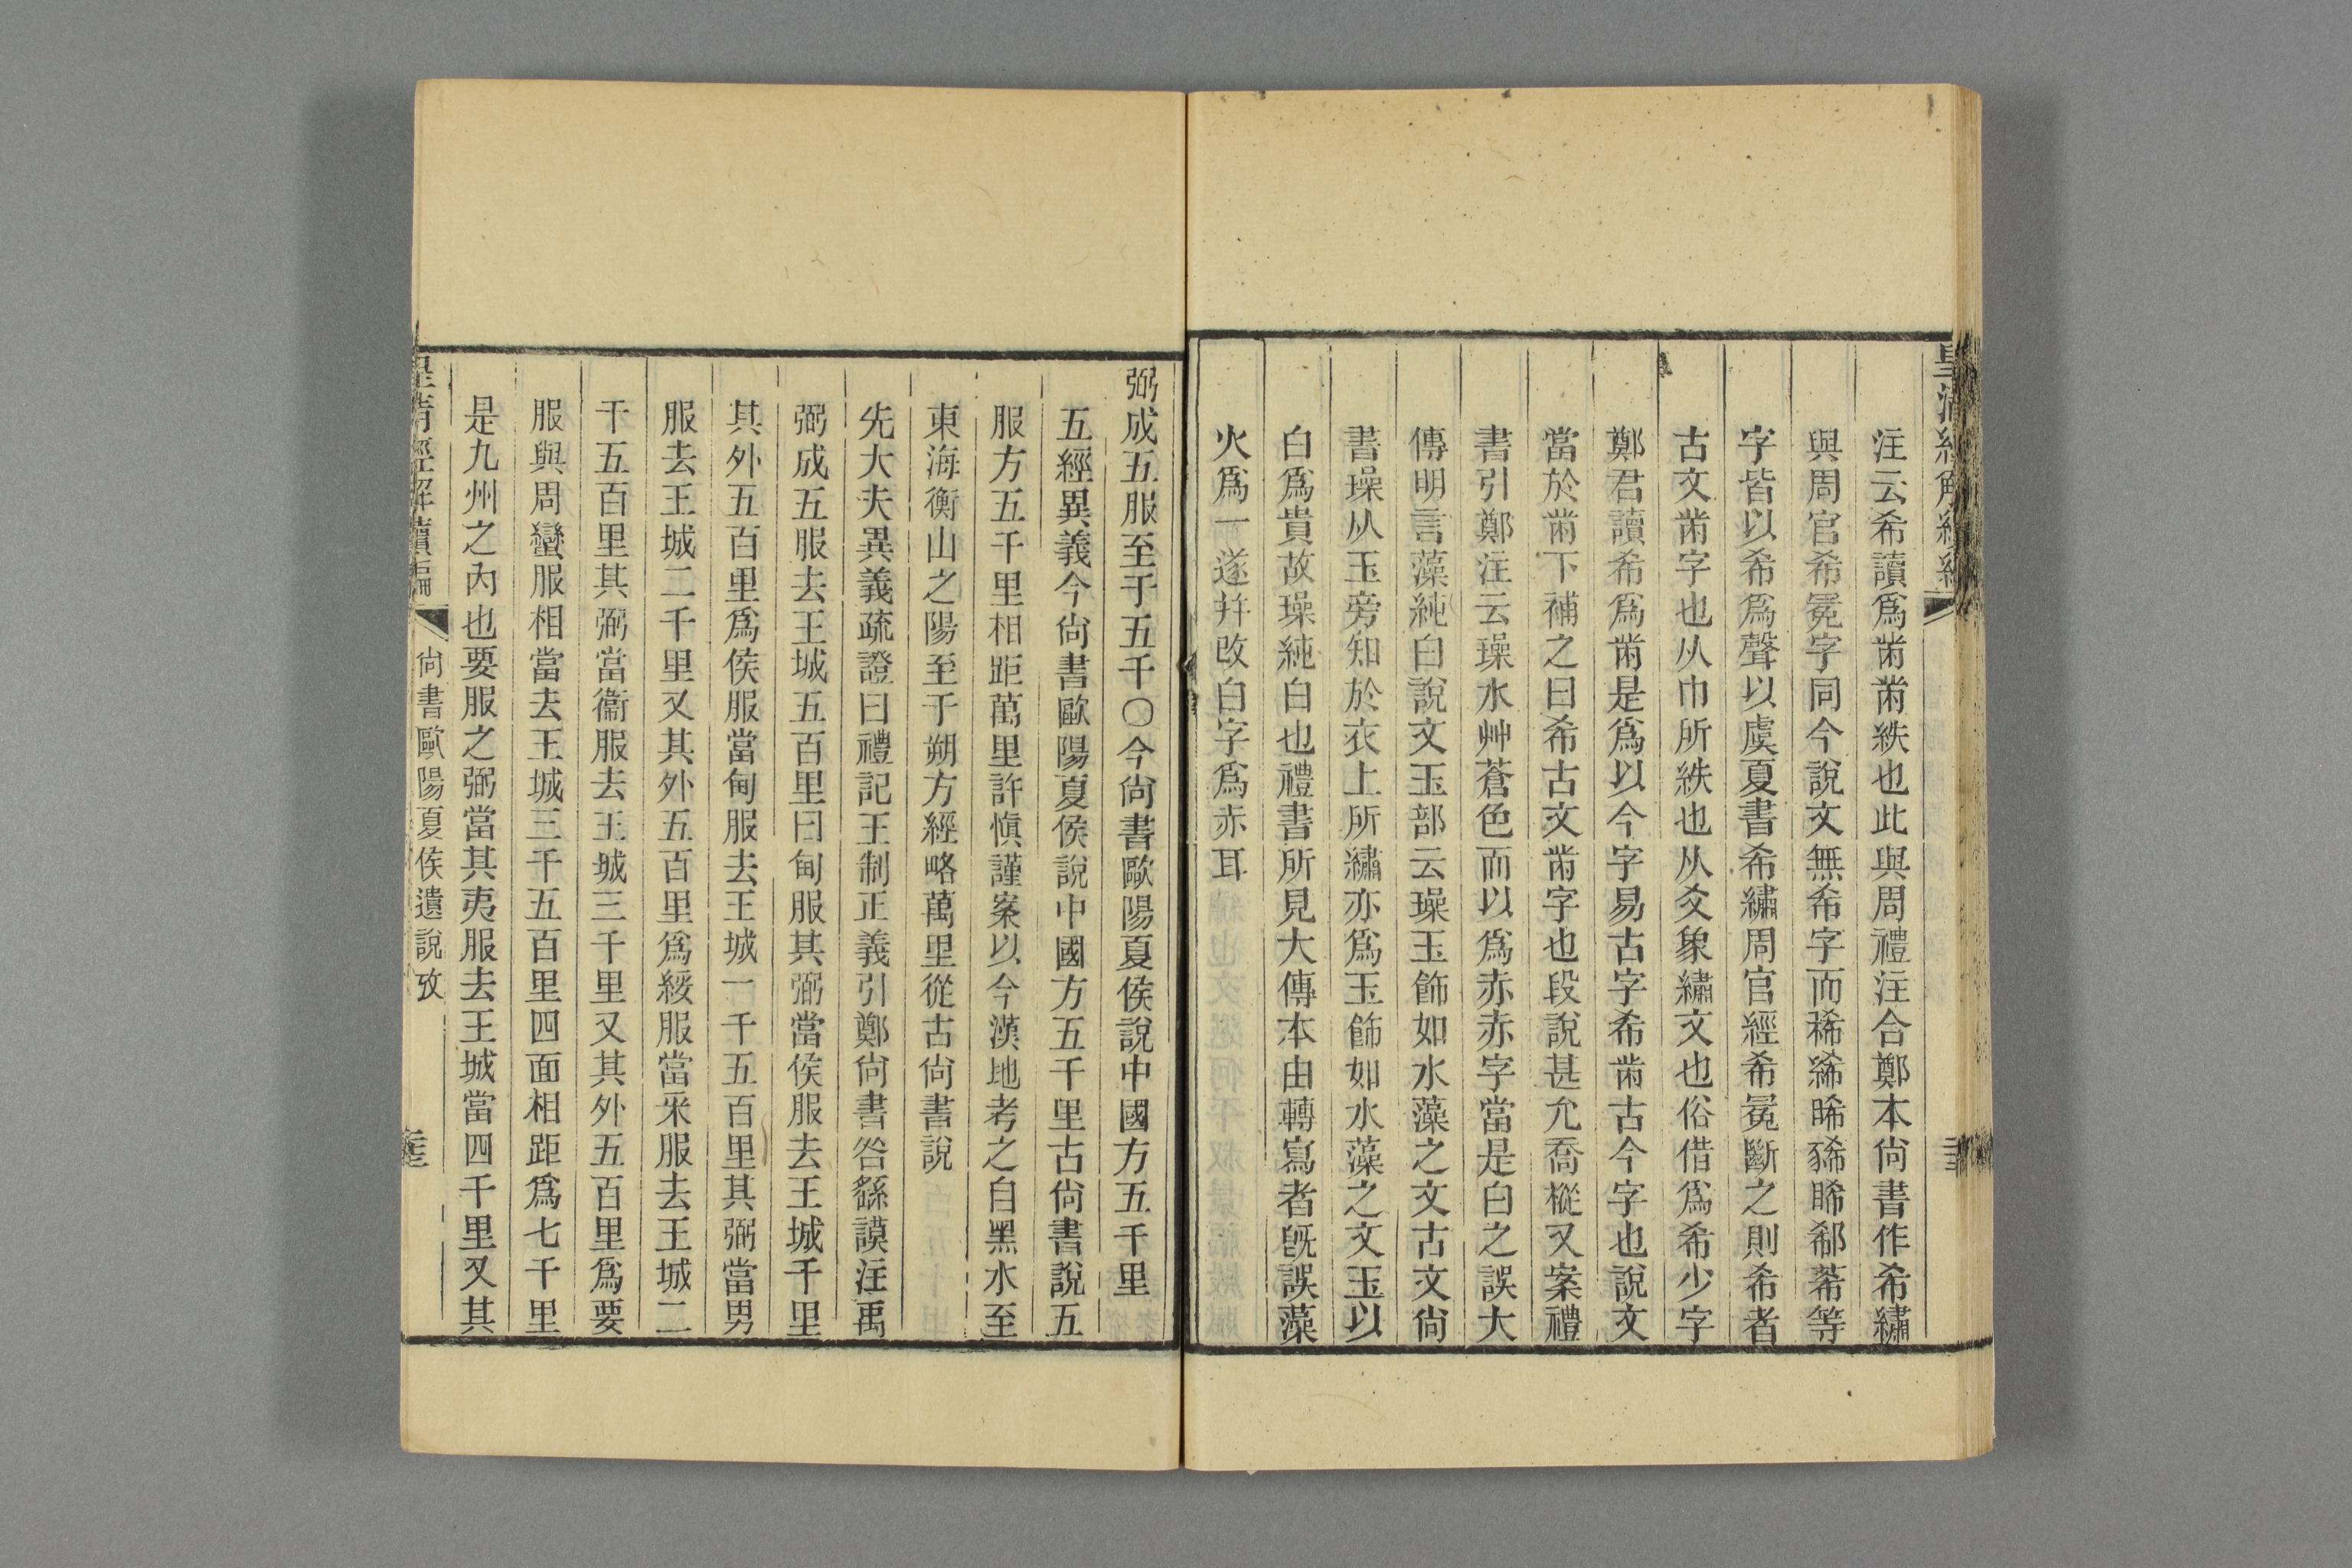 注云希讀爲黹黹紩也此與周禮注合鄭本尙書作希繡
與周官希冕字同今說文無希字而稀絺晞豨睎郗莃等
字皆以希爲聲以虞夏書希繡周官經希冕斷之則希者
古文黹字也从巾所紩也从爻象繡文也俗借爲希少字
鄭君讀希爲黹是爲以今字易古字希黹古今字也說文
當於黹下補之曰希古文黹字也段說甚允喬樅又案禮
書引鄭注云璪水艸蒼色而以爲赤赤字當是白之誤大
傳明言藻純白說文玉部云璪玉飾如水藻之文古文尙
書璪从玉旁知於衣上所繡亦爲玉飾如水藻之文玉以
白爲貴故璪純白也禮書所見大傳本由轉寫者旣誤藻
火爲一遂并改白字爲赤耳
弼成五服至于五千〇今尙書歐陽夏侯說中國方五千里
五經異義今尙書歐陽夏侯說中國方五千里古尙書說五
服方五千里相距萬里許愼謹案以今漢地考之自黑水至
東海衡山之陽至于朔方經略萬里從古尙書說
先大夫異義疏證曰禮記王制正義引鄭尙書咎繇謨注禹
弼成五服去王城五百里曰甸服其弼當侯服去王城千里
其外五百里爲侯服當甸服去王城一千五百里其弼當男
服去王城二千里又其外五百里爲綏服當采服去王城二
千五百里其弼當衞服去王城三千里又其外五百里爲要
服與周蠻服相當去王城三千五百里四面相距爲七千里
是九州之內也要服之弼當其夷服去王城當四千里又其
皇淸經解續編 尙書歐陽夏侯遺說攷